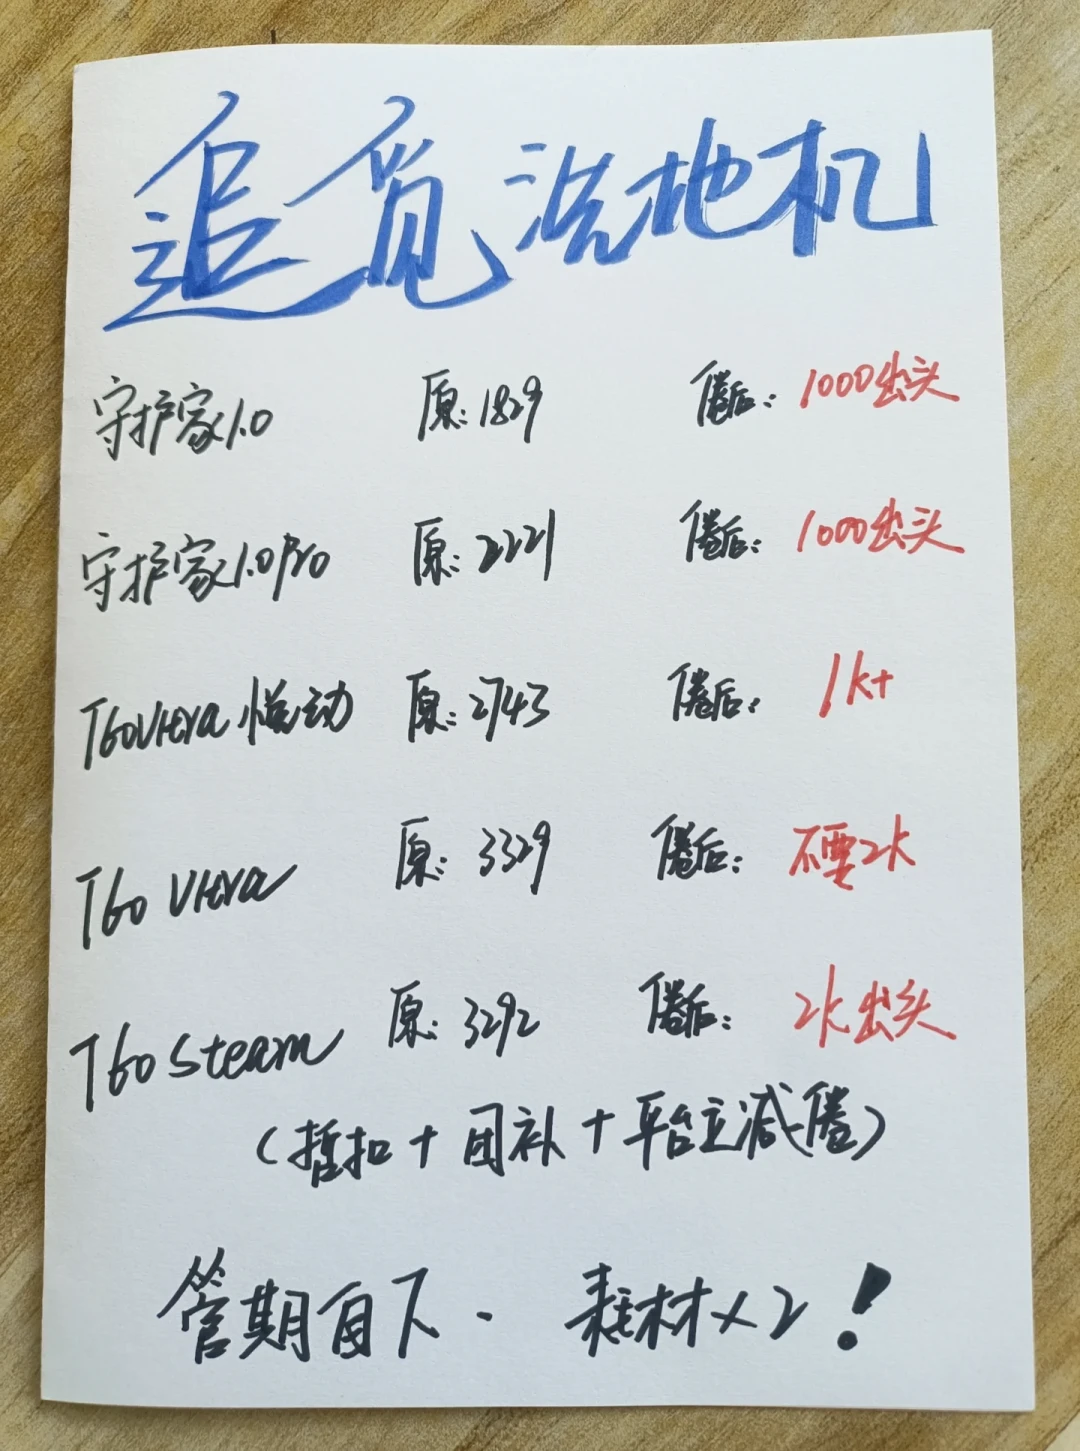 追觅洗地机
守护家1.0 原:1829 倦后:1000出头
守护家1.0pro 原:2221 倦后:1000出头
T60Ultra悦动 原:2743 倦后:1k+
T60 Ultra 原:3329 倦后:不要2k
T60 Steam 原:3292 倦后:2k出头
(哲扣+团补+平台立减倦)
期百下. 耗材×2!